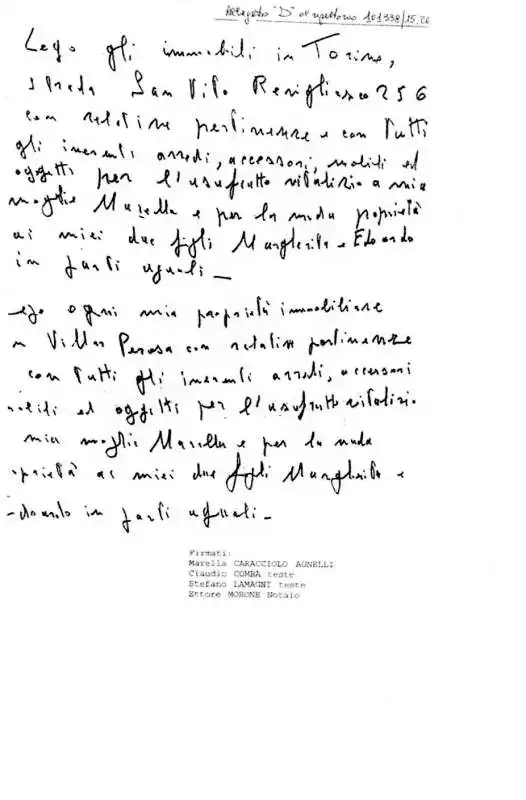 Allegato "D" al repertorio 101338/15.20
Lego gli immobili in Torino,
strada San Vito Revigliasco 256
con relative pertinenze e con tutti
gli inerenti arredi, accessori, mobili ed
oggetti per l'usufrutto vitalizio a mia
moglie Marella e per la nuda proprietà
ai miei due figli Margherita e Edoardo
in parti uguali -
ego ogni mia proprietà immobiliare
n Villar Perosa con relative pertinenze
con tutti gli inerenti arredi, accessori
mobili ed oggetti per l'usufrutto vitalizio
mia moglie Marella e per la nuda
oprietà ai miei due figli Margherita e
-doardo in parti uguali -
Firmati:
Marella CARACCIOLO AGNELLI
Claudio COMBA teste
Stefano LAMAGNI teste
Ettore MORONE Notaio